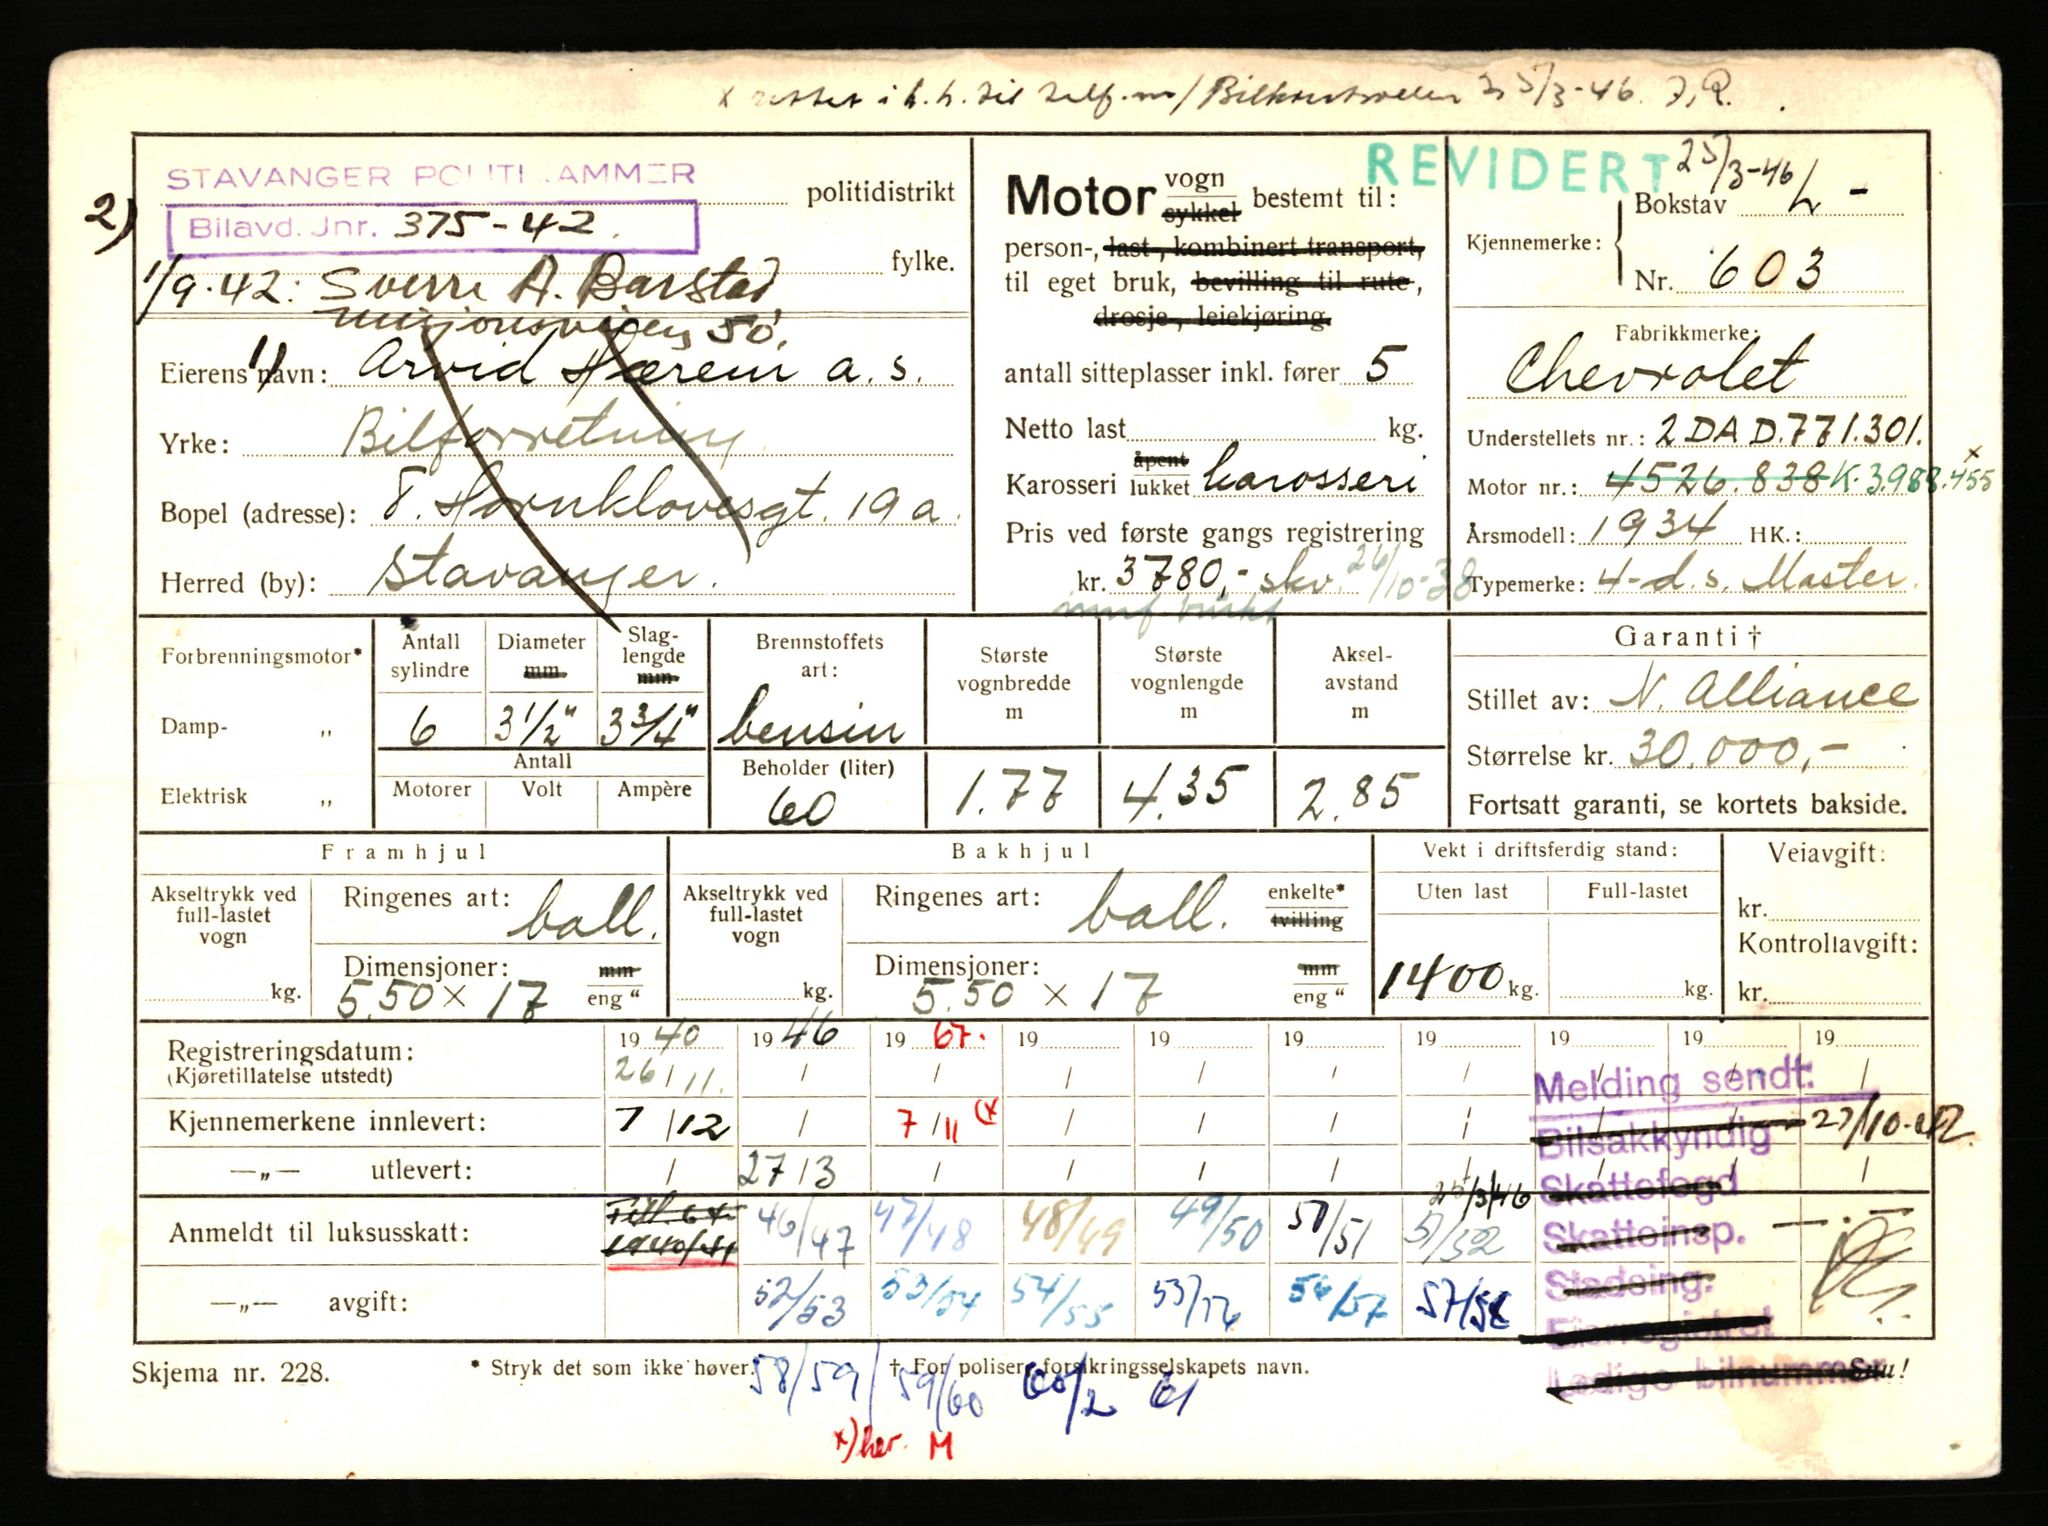 x rettet i h. h. til telf. m/ Bilkontrollen 25/3-46. J.R.
STAVANGER POLITIKAMMER politidistrikt
2) Bilavd. Jnr. 375-42.
fylke.
1/9.42: Sverre A. Barstad
misjonsveien 50.
Eierens navn: 1) Arvid Hærem a.s.
Yrke: Bilforretning
Bopel (adresse): T. Hornklovesgt. 19a.
Herred (by): Stavanger.
Motor vogn sykkel bestemt til:
person-, last-, kombinert transport,
til eget bruk, bevilling til rute,
drosje-, leiekjøring.
antall sitteplasser inkl. fører 5
Netto last kg.
Karosseri åpent lukket karosseri
Pris ved første gangs registrering
kr. 3780,- skv. 26/10-38
REVIDERT 25/3-46
Kjennemerke: Bokstav L -
Nr. 603
Fabrikkmerke:
Chevrolet
Understellets nr.: 2 DA D.771.301.
Motor nr.: 4526.838 K.3.988.455 x
Årsmodell: 1934 HK.:
Typemerke: 4-d.s. Master.
Forbrenningsmotor*
Damp- „
Elektrisk „
Antall sylindre
6
Diameter mm
3 1/2"
Slag-lengde mm
3 3/4"
Antall
Motorer Volt Ampère
Brennstoffets art:
bensin
Beholder (liter)
60
Største vognbredde m
1.77
Største vognlengde m
4.35
Aksel-avstand m
2.85
Garanti †
Stillet av: N. Alliance
Størrelse kr. 30.000,-
Fortsatt garanti, se kortets bakside.
Framhjul
Akseltrykk ved full-lastet vogn
kg.
Ringenes art: ball.
Dimensjoner: mm
5.50 x 17 eng "
Bakhjul
Akseltrykk ved full-lastet vogn
kg.
Ringenes art: ball. enkelte* tvilling
Dimensjoner: mm
5.50 x 17 eng "
Vekt i driftsferdig stand:
Uten last Full-lastet
1400 kg. kg.
Veiavgift:
kr.
Kontrollavgift:
kr.
Registreringsdatum: 19 40 19 46 19 67. 19 19 19 19 19 19 19
(Kjøretillatelse utstedt) 26/11.
Kjennemerkene innlevert: 7/12 7/11 (x
—„— utlevert: 27/3
25/3/46
Anmeldt til luksusskatt: 1940/41 46/47 47/48 48/49 49/50 50/51 51/52
—„— avgift: 52/53 53/54 54/55 55/56 56/57 57/58
Melding sendt:
Bilsakkyndig 27/10-42.
Skattefogd
Skatteinsp. —.—
Stadsing.
Eierregistret
Ledige bilnummer
Skjema nr. 228. * Stryk det som ikke høver. † For polisen forsikringsselskapets navn. Snu!
58/59 59/60 60/2 61
x) her. M